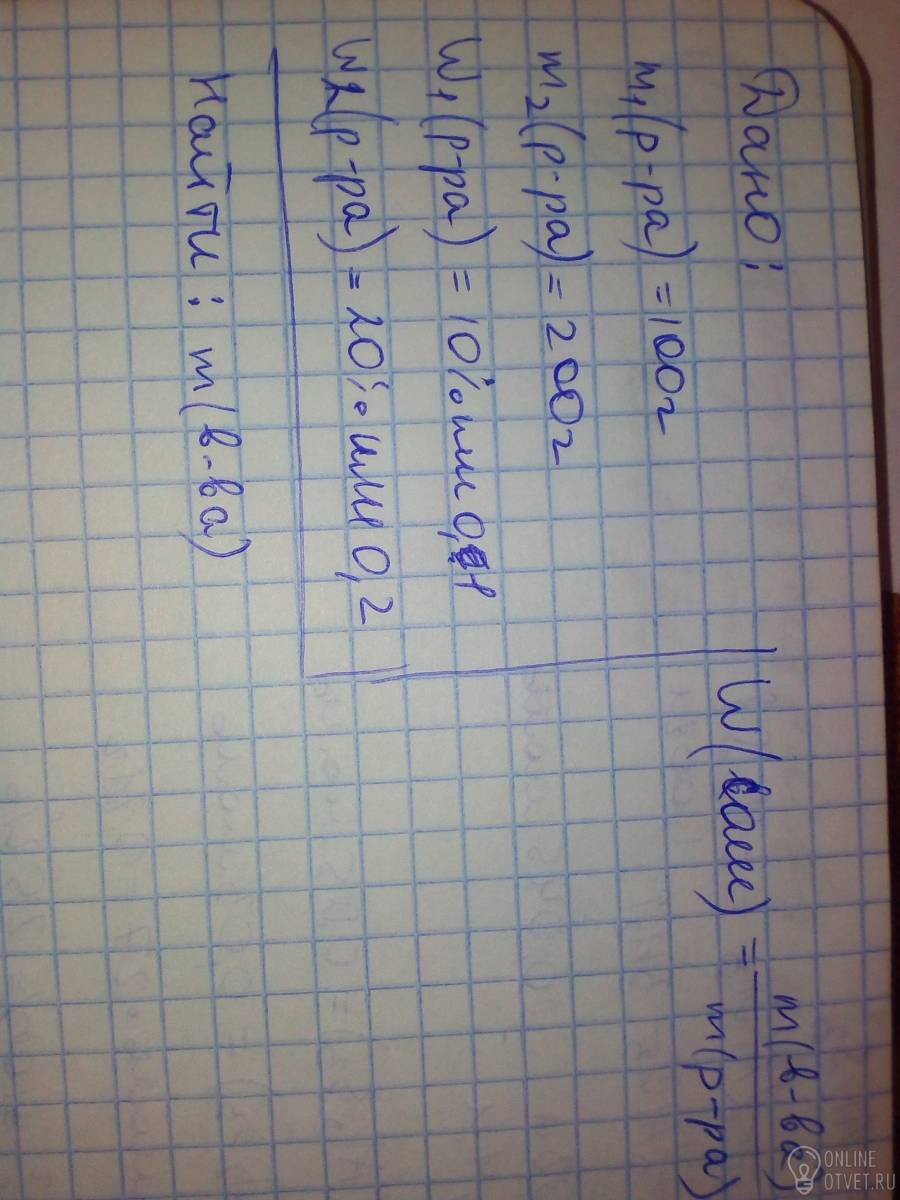 Дано:
m₁(р-ра) = 100г
m₂(р-ра) = 200г
W₁(р-ра) = 10% или 0,1
W₂(р-ра) = 20% или 0,2
Найти: m(в-ва)
W(соли) = m(в-ва)
m(р-ра)
ONLINE
OTVET.RU